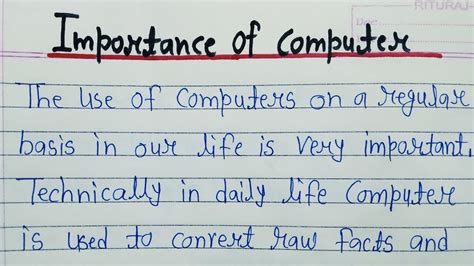 RITURAJ
Importance of Computer
The use of Computers on a regular
basis in our life is very important.
Technically in daily life Computer
is used to convert raw facts and